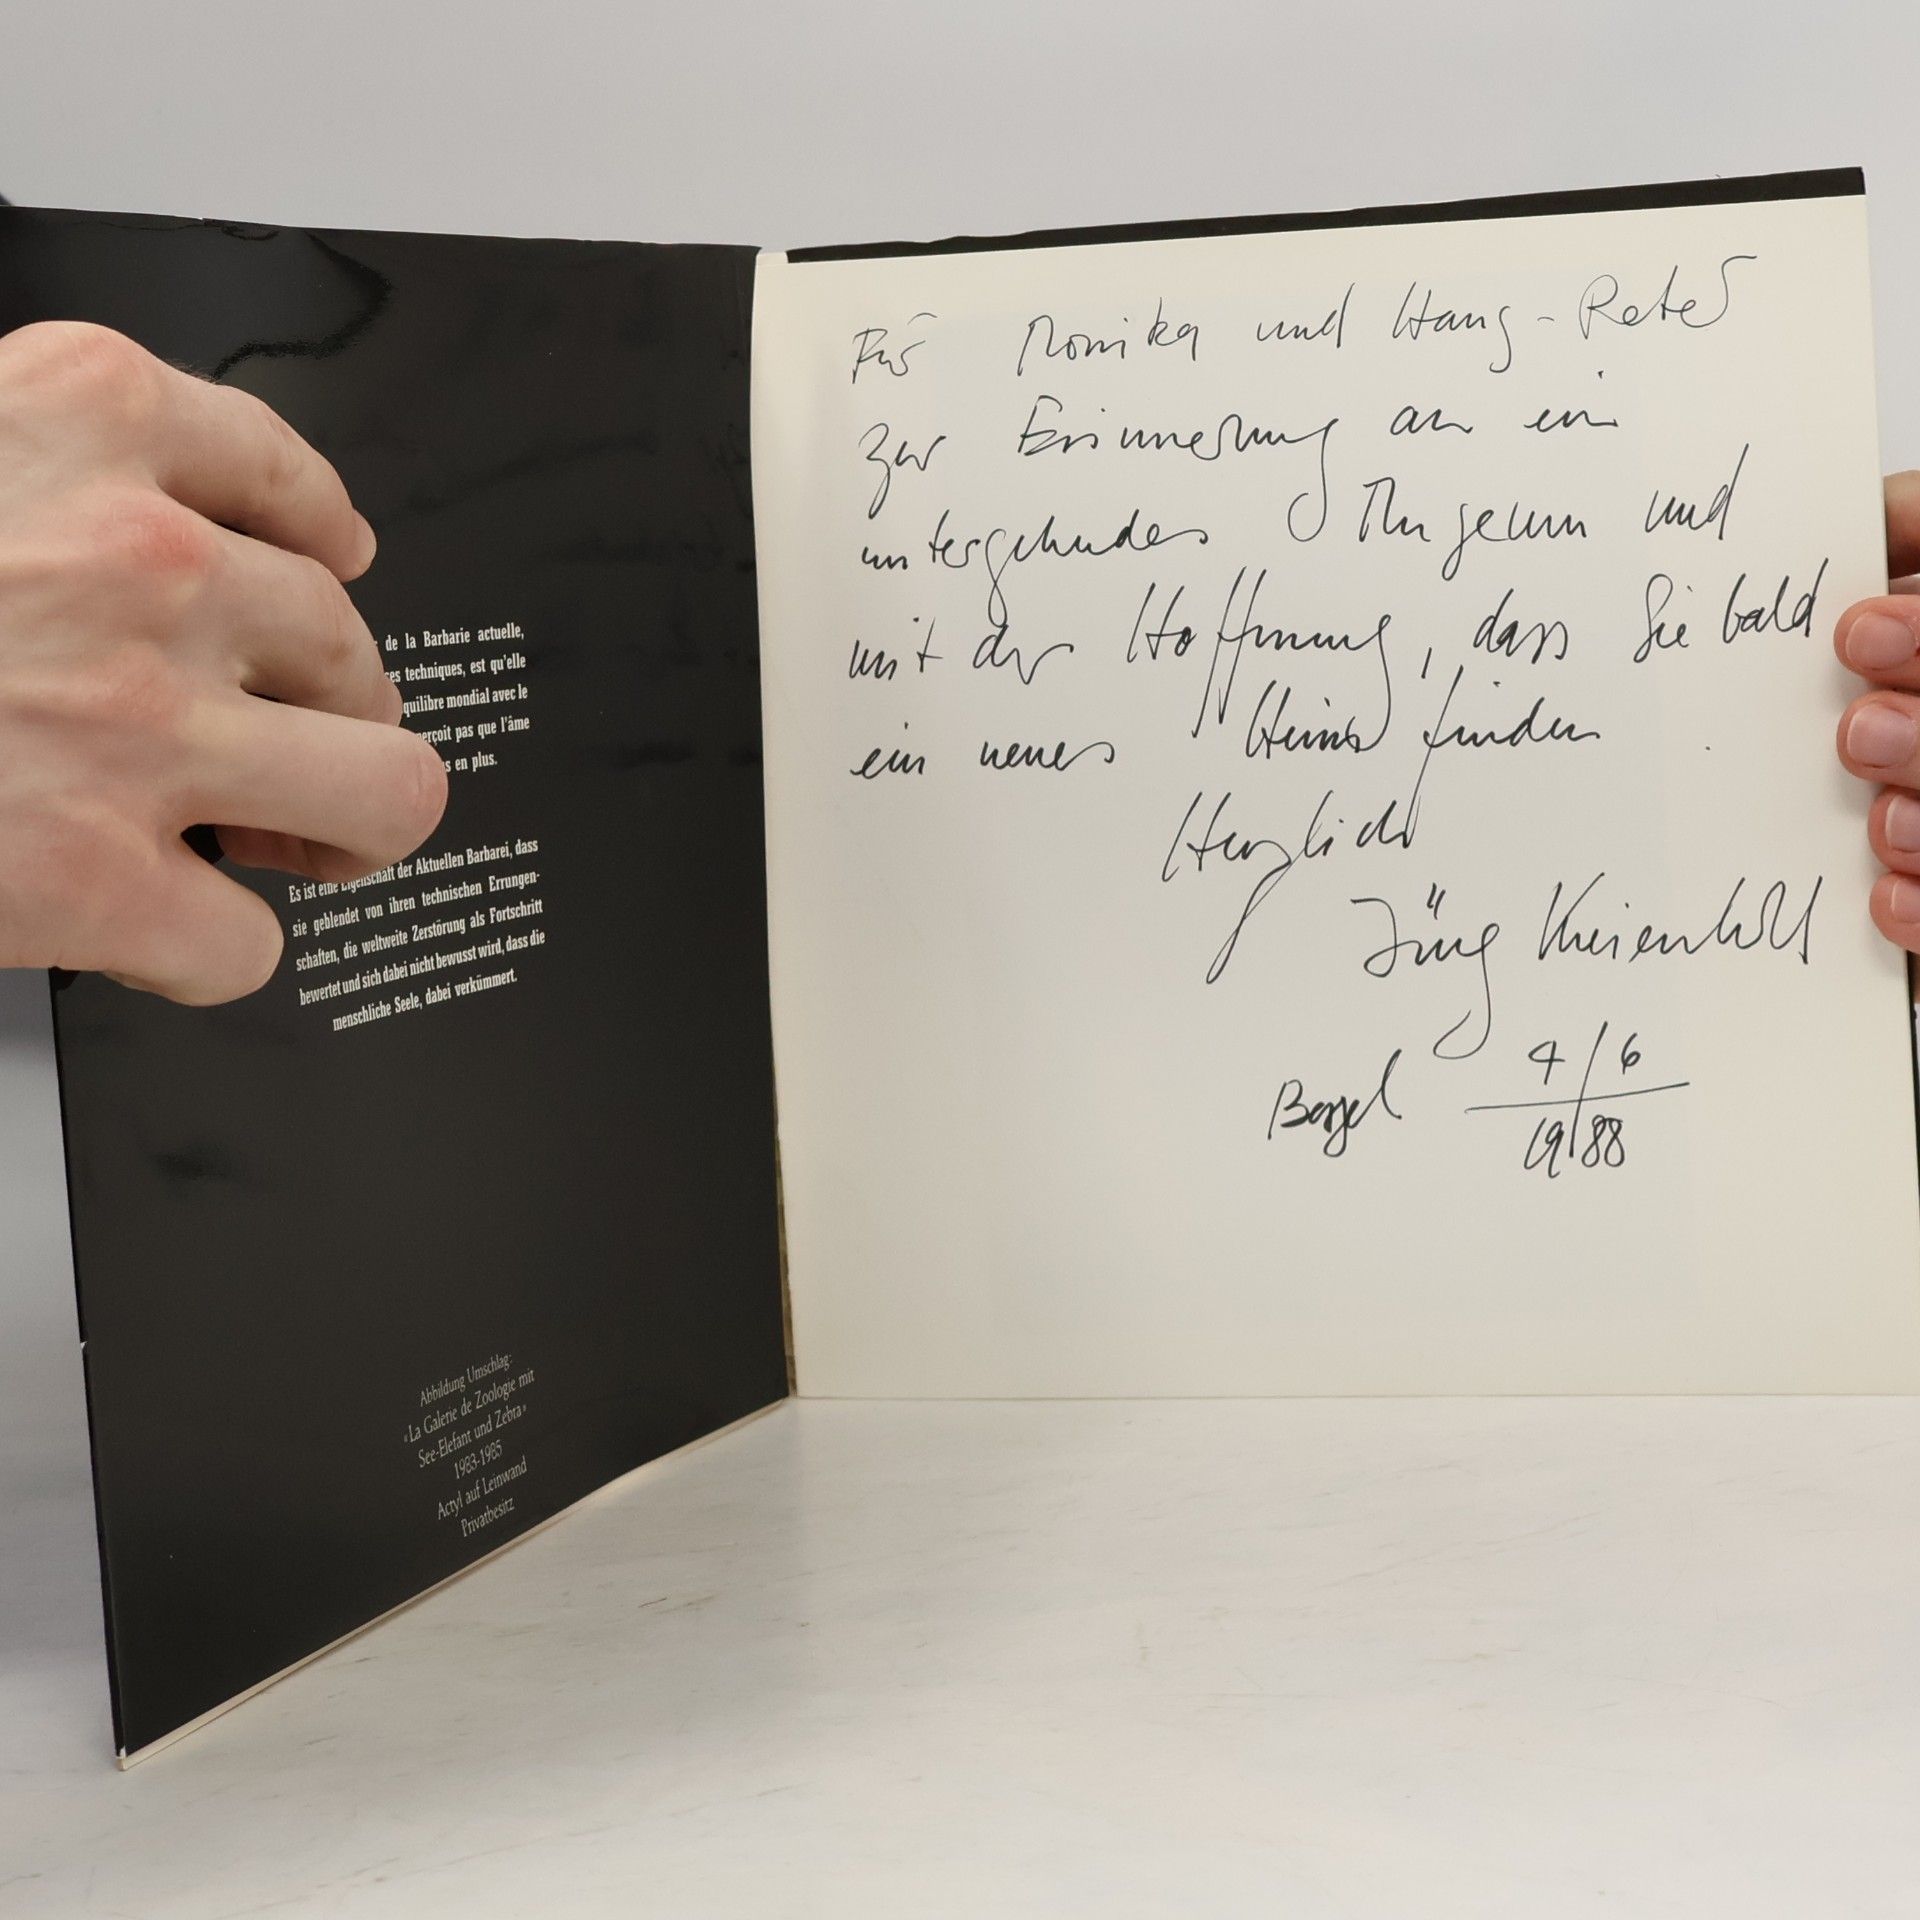 de la Barbarie actuelle,
techniques, est qu'elle
mondial avec le
pas que l'âme
en plus.
Es ist eine Eigenschaft der Aktuellen Barbarei, dass
sie geblendet von ihren technischen Errungen-
schaften, die weltweite Zerstörung als Fortschritt
bewertet und sich dabei nicht bewusst wird, dass die
menschliche Seele, dabei verkümmert.
Abbildung Umschlag:
«La Galerie de Zoologie mit
See-Elefant und Zebra»
1983-1985
Actyl auf Leinwand
Privatbesitz
Für Monika und Hans-Peter
zur Erinnerung an ein
untergehendes Museum und
mit der Hoffnung, dass Sie bald
ein neues Heim finden
Herzlich
Jürg Kreienbühl
Basel 4/6
19/88